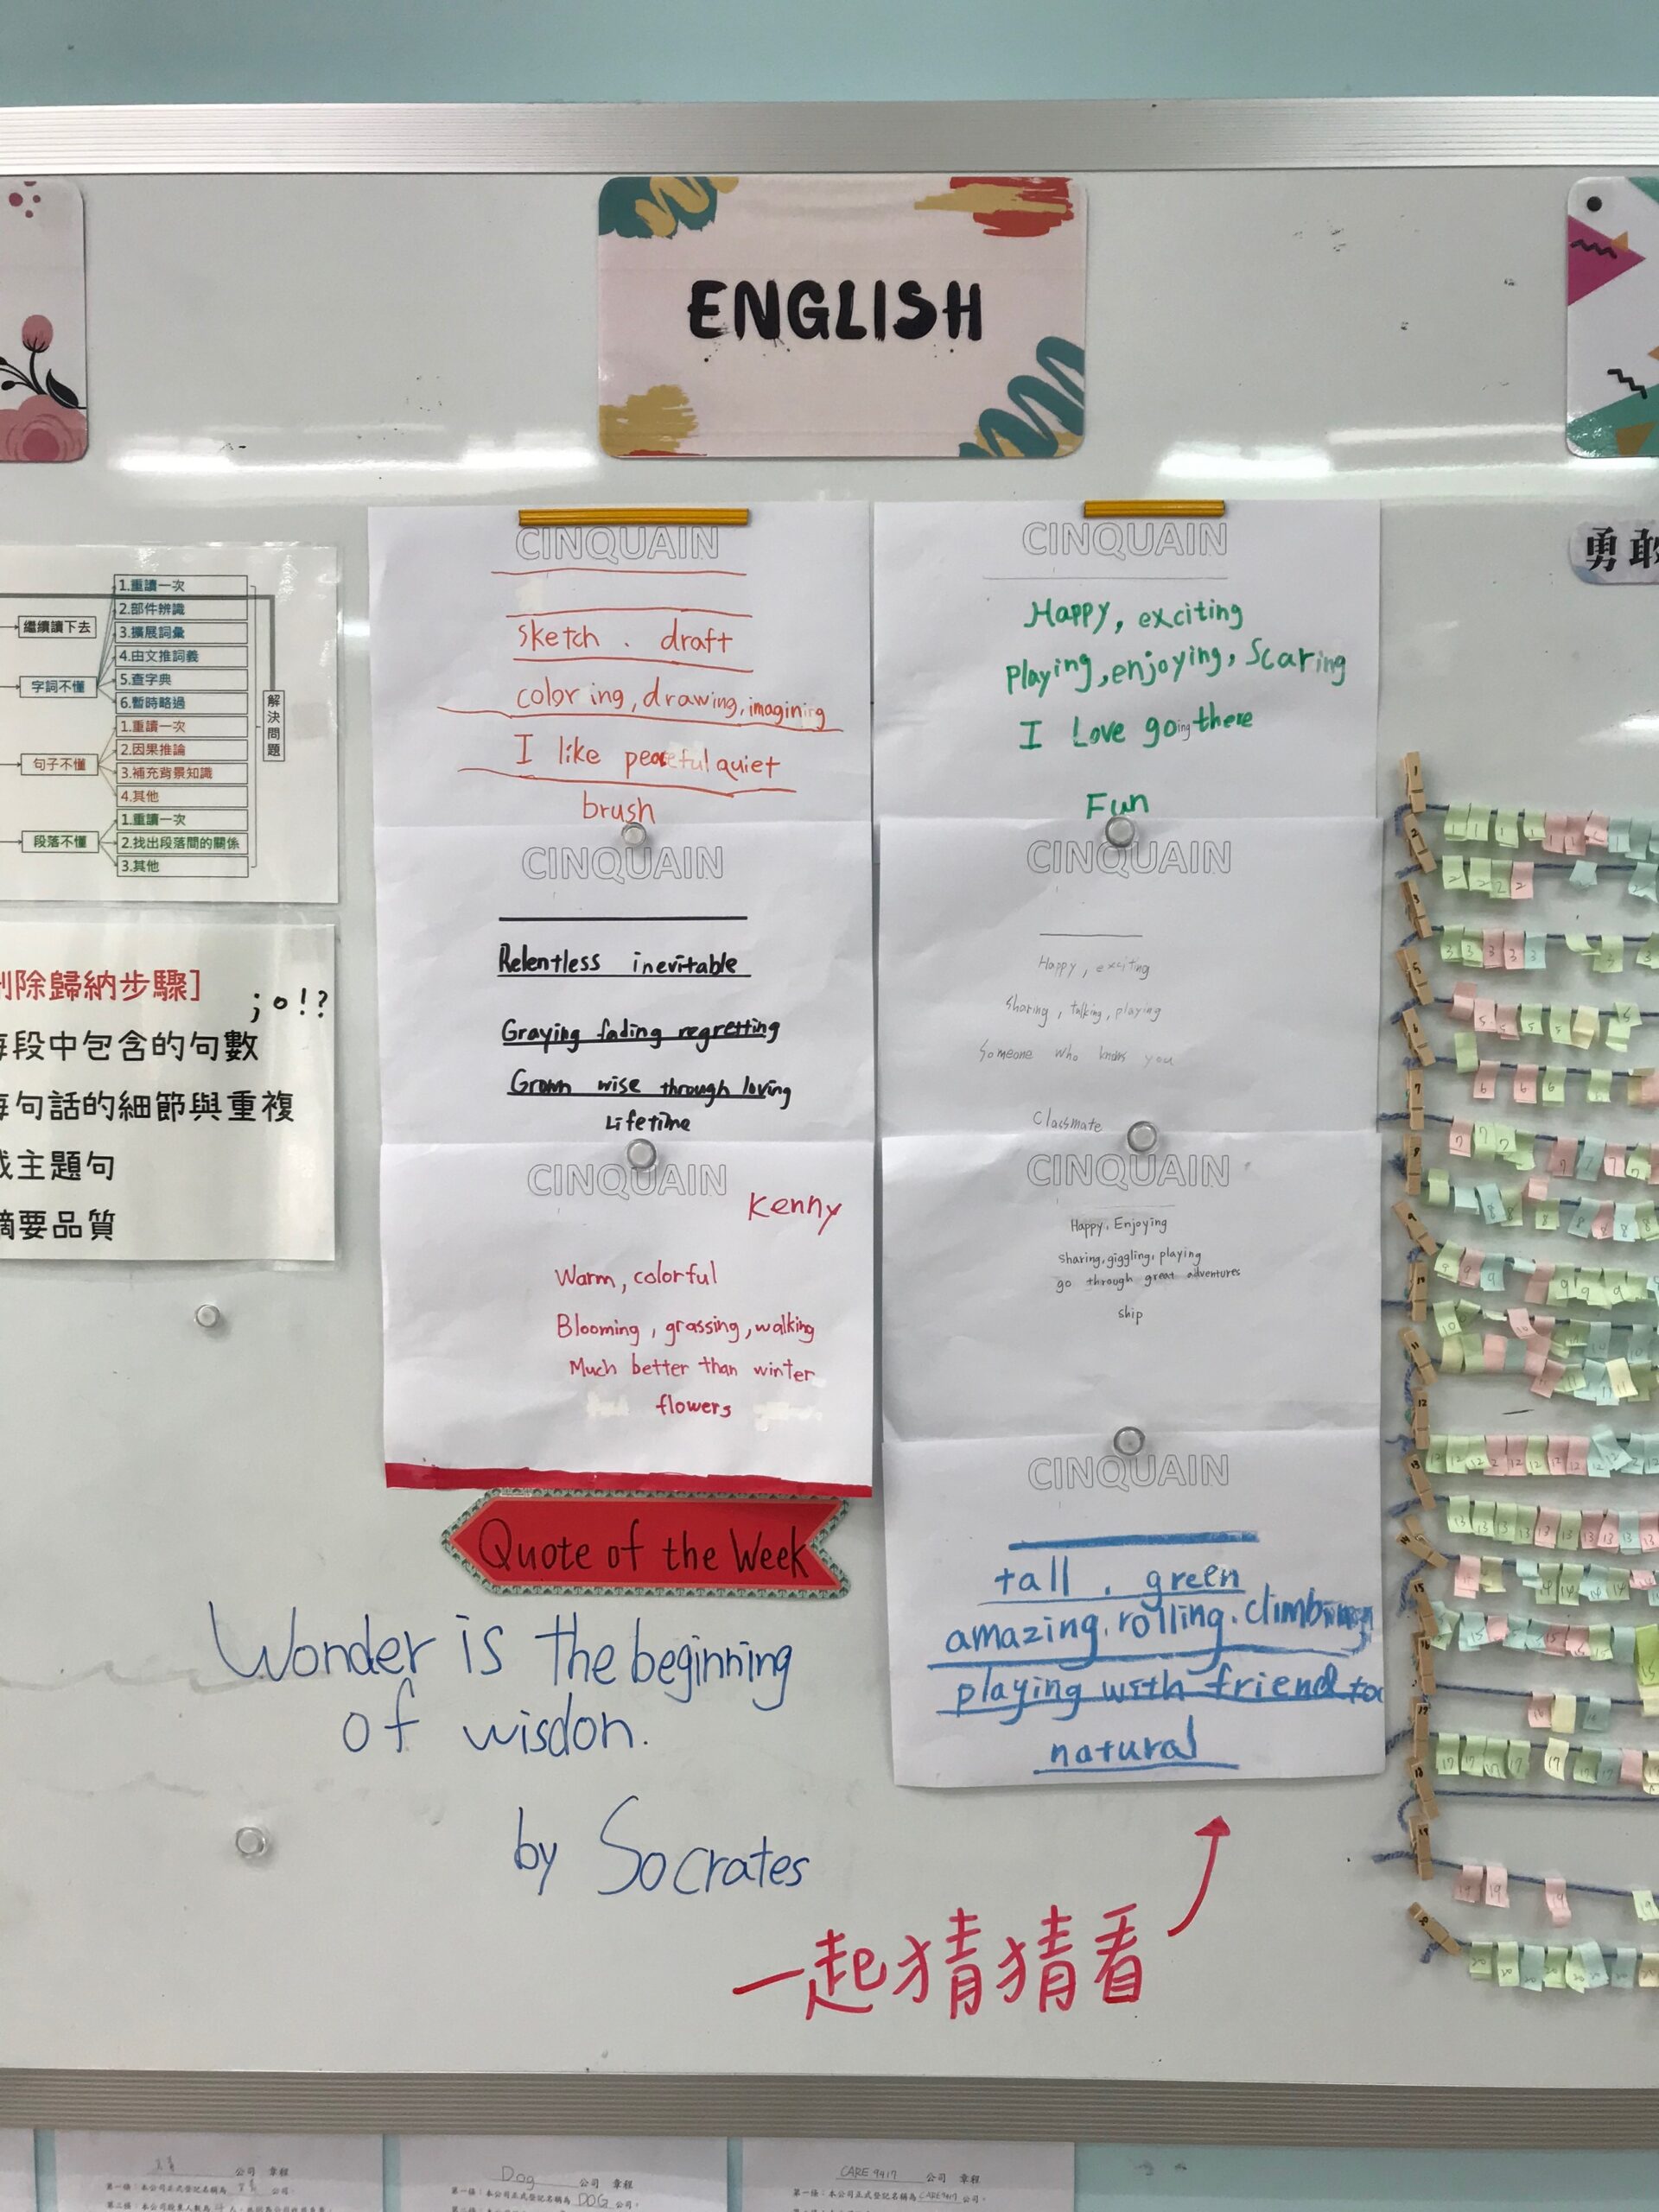 ENGLISH
繼續讀下去
字詞不懂
句子不懂
段落不懂
1.重讀一次
2.部件辨識
3.擴展詞彙
4.由文推詞義
5.查字典
6.暫時略過
1.重讀一次
2.因果推論
3.補充背景知識
4.其他
1.重讀一次
2.找出段落間的關係
3.其他
解決問題
刪除歸納步驟]
;。!?
每段中包含的句數
每句話的細節與重複
找主題句
摘要品質
CINQUAIN
sketch . draft
coloring, drawing, imagining
I like peaceful quiet
brush
CINQUAIN
Relentless inevitable
Graying fading regretting
Grown wise through loving
Lifetime
CINQUAIN
Kenny
Warm, colorful
Blooming, grassing, walking
Much better than winter
flowers
CINQUAIN
Happy, exciting
playing, enjoying, Scaring
I Love going there
Fun
CINQUAIN
Happy, exciting
Sharing, talking, playing
Someone who knows you
Classmate
CINQUAIN
Happy, Enjoying
sharing, giggling, playing
go through great adventures
ship
CINQUAIN
tall . green
amazing. rolling. climbing
playing with friend too
natural
Quote of the Week
Wonder is the beginning
of wisdon.
by Socrates
一起猜猜看
勇敢
公司 章程
Dog 公司 章程
第一條：本公司正式登記名稱為 DOG 公司。
CARE 9417 公司 章程
第一條：本公司正式登記名稱為 CARE9417 公司。